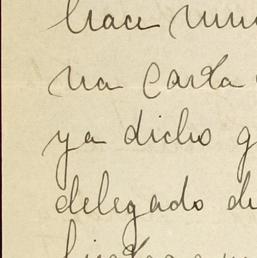 hace
na carta
ya dicho
delegado de